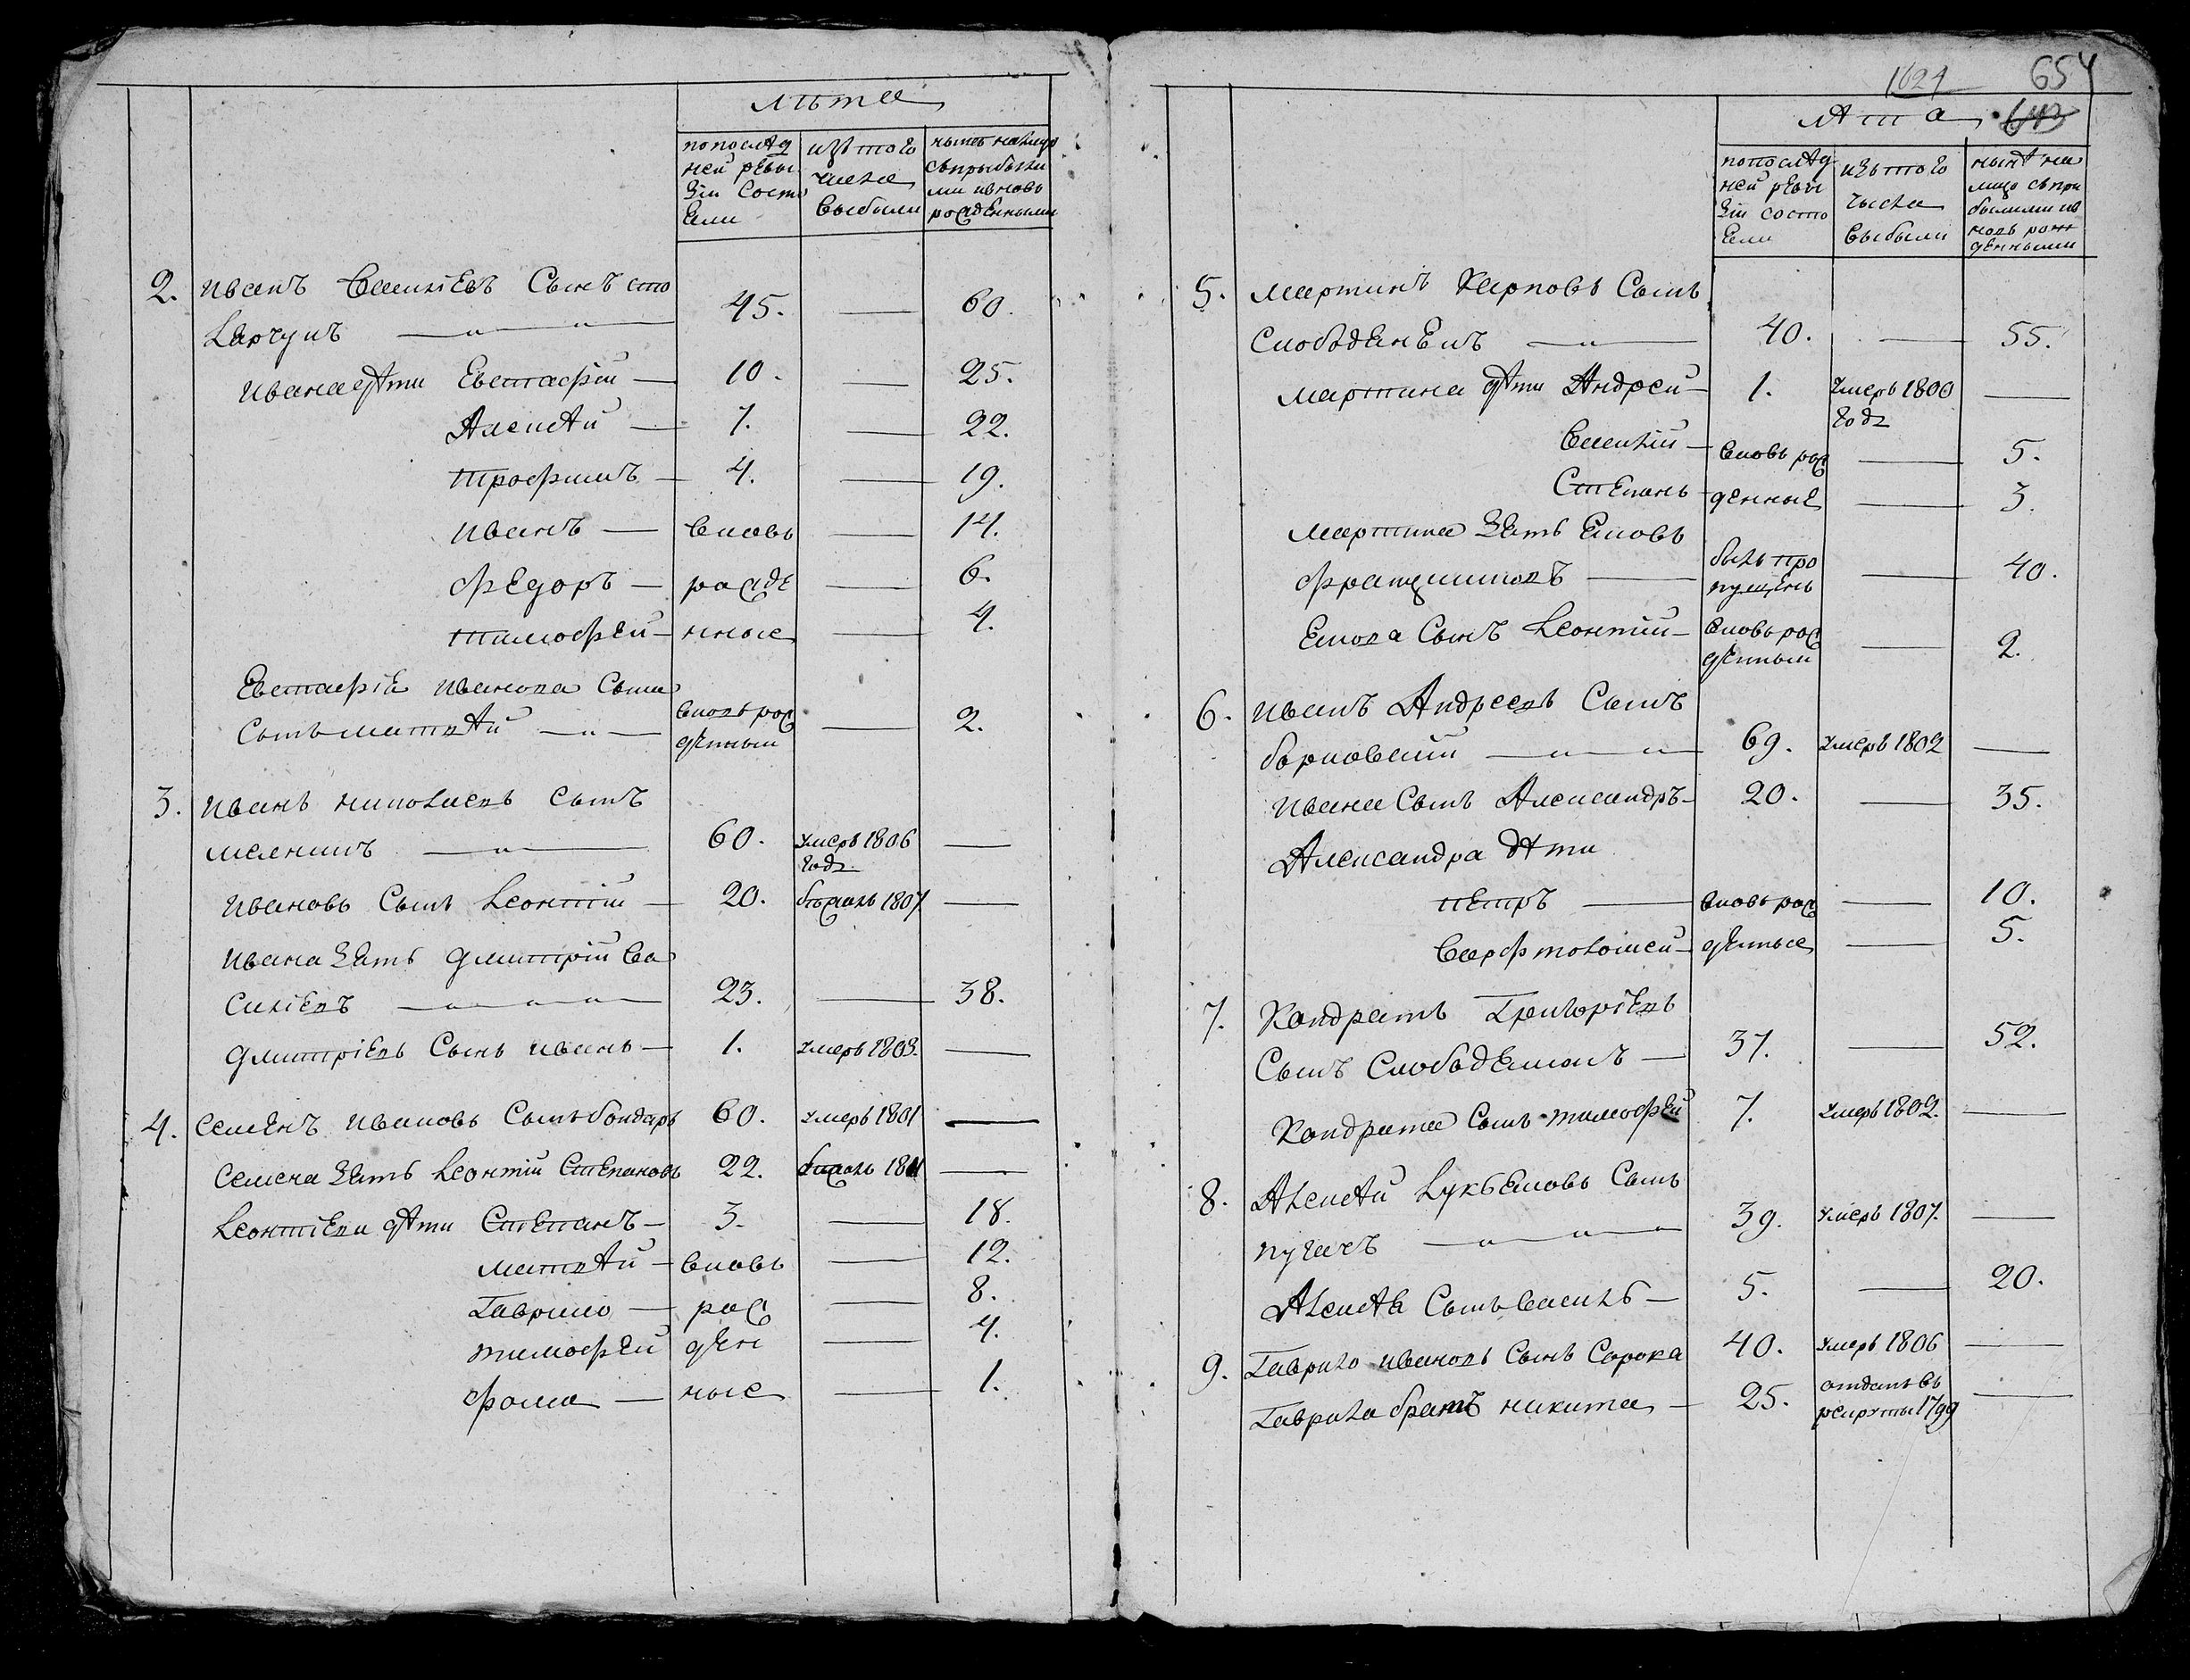 лѣта
по послѣд
ней реви
зіи состо
яли
изъ того
числа
выбыли
нынѣ на лицо
съ прибылы
ми и вновь
рожденными
2. Иванъ Васильевъ Сынъ сто
ларчукъ 45. 60.
Ивана дѣти Евстафій 10. 25.
Алексѣй 7. 22.
Трофимъ 4. 19.
Иванъ вновь 14.
Федоръ рожде 6.
Тимофей нные 4.
Евстафіе Иванова Сына
Сынъ Матвѣй вновь рож
денный 2.
3. Иванъ Николаевъ Сынъ
мелникъ 60. умеръ 1806
года
Ивановъ Сынъ Леонтій 20. бѣжалъ 1807.
Ивана Зять Дмитрій Ва
силіевъ 23. 38.
Дмитріевъ Сынъ Иванъ 1. умеръ 1803.
4. Семенъ Ивановъ Сынъ бондарь 60. умеръ 1801
Семена Зять Леонтій Степановъ 22. бѣжалъ
Леонтіева дѣти Степанъ 3. 18.
Матвѣй вновь 12.
Гаврило рож 8.
Тимофей ден 4.
Фома ные 1.
1624 654
643
лѣта
по послѣд
ней реви
зіи состо
яли
изъ того
числа
выбыли
нынѣ на
лицо съ при
былыми и в
новь рож
денными
5. Мартинъ Карповъ Сынъ
Слободенекъ 40. 55.
Мартина дѣти Андрей 1. умеръ 1800
года
Василій вновь рож 5.
Степанъ денные 3.
Мартина Зять Яковъ
Францишковъ былъ про
пущенъ 40.
Якова Сынъ Леонтій вновь рож
денный 2.
6. Иванъ Андреевъ Сынъ
барковскій 69. умеръ 1802
Ивана Сынъ Александръ 20. 35.
Александра дѣти
Петръ вновь рож 10.
Варфтоломей денные 5.
7. Кондратъ Григоріевъ
Сынъ Слободенюкъ 37. 52.
Кондрата Сынъ Тимофей 7. умеръ 1802.
8. Алексѣй Лукьяновъ Сынъ
пугачъ 39. умеръ 1807.
Алексѣя Сынъ Василь 5. 20.
9. Гаврило Ивановъ Сынъ Сорока 40. умеръ 1806
Гаврила братъ Никита 25. отданъ въ
рекруты 1799